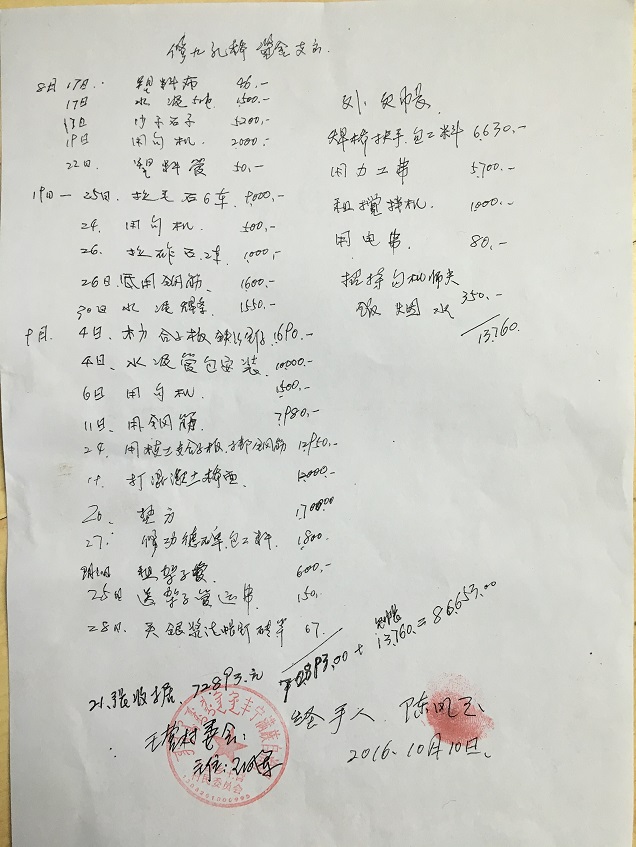 修九孔桥资金支出.
8月17日. 塑料布 46.-
17日 水泥5吨 1500.-
18日 沙子石子 5200.-
19日 用勾机 2000.-
22日. 塑料管 50.-
19日—25日. 拉毛石6车. 9000.-
24. 用勾机 500.-
26. 拉砟石2车. 1000.-
26日 用钢筋 1600.-
30日 水泥 1550.-
9月. 4日. 合子板 1690.-
4日. 水泥管包安装. 10000.-
6日 用勾机 1500.-
11日. 用钢筋 7980.-
24. 用 合子板. 钢筋 12950.-
打混凝土桥面 12000.-
26. 垫方 1700.00
27. 修功德碑包工料. 1800.-
租架子 600.-
25日 送架子管运费 150.-
28日. 买银浆 67.
72893.00 + 13760. = 86653.00
21张收据. 72893.元
王营村委会:
主任:
另外欠帐
焊桥扶手.包工料 6630.-
用力工费 5700.-
租搅拌机. 1000.-
用电费. 80.-
招待勾机师夫
饭 烟 水 350.-
13760.
经手人 陈凤玉
2016.10月10日.